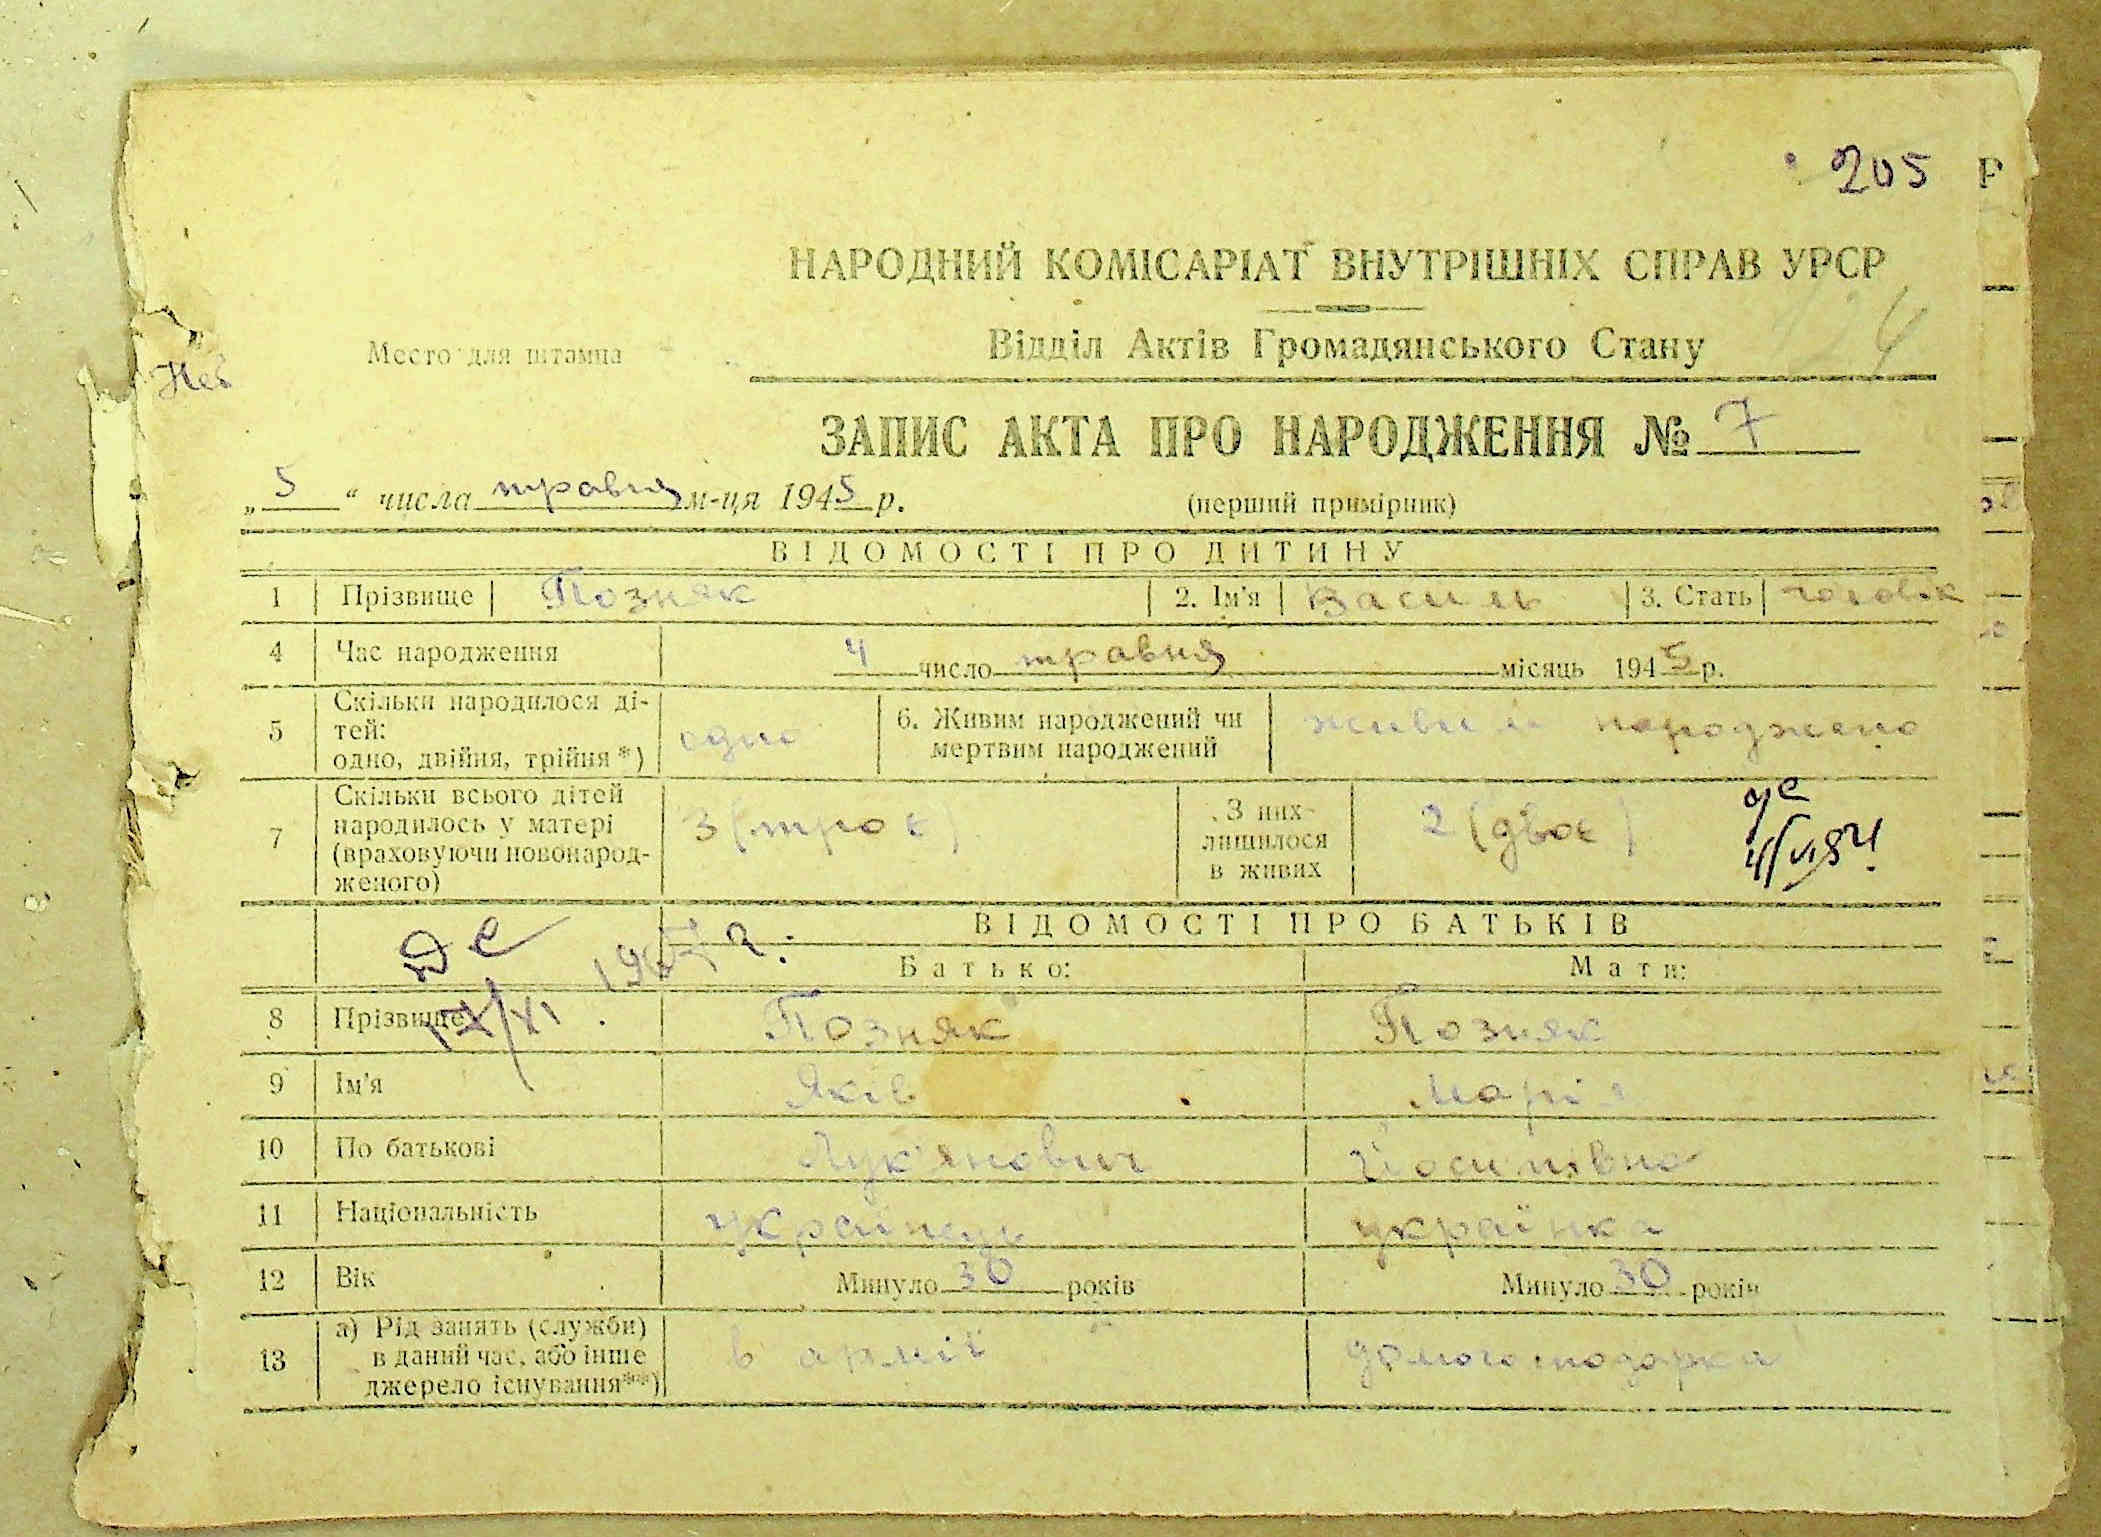 205
НАРОДНИЙ КОМІСАРІАТ ВНУТРІШНІХ СПРАВ УРСР
Место для штампа
Відділ Актів Громадянського Стану
4
ЗАПИС АКТА ПРО НАРОДЖЕННЯ № 7
„ 5 “ числа травня м-ця 1945 р.
(перший примірник)
ВІДОМОСТІ ПРО ДИТИНУ
1 Прізвище Позняк 2. Ім'я Василь 3. Стать чоловік
4 Час народження 4 число травня місяць 1945 р.
5 Скільки народилося ді-
тей:
одно, двійня, трійня *) одно 6. Живим народжений чи
мертвим народжений живим народжено
7 Скільки всього дітей
народилось у матері
(враховуючи новонарод-
женого) 3 (троє) З них
лишилося
в живих 2 (двоє)
ВІДОМОСТІ ПРО БАТЬКІВ
Батько: Мати:
8 Прізвище Позняк Позняк
9 Ім'я Яків Марія
10 По батькові Лук'янович Йосипівна
11 Національність українець українка
12 Вік Минуло 30 років Минуло 30 років
13 а) Рід занять (служби)
в даний час, або інше
джерело існування**) в армії домогосподарка